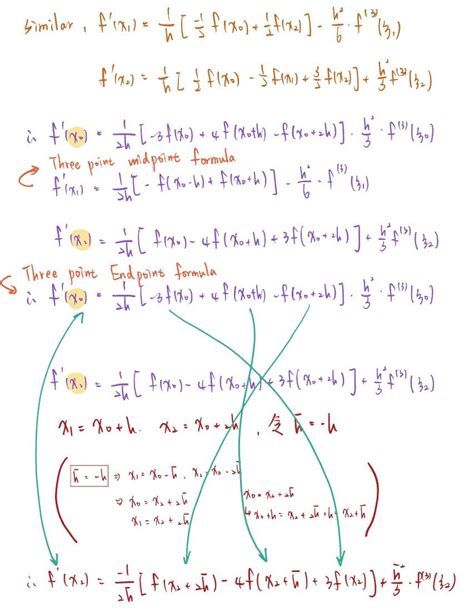 Similar, f'(x₁) = 1/h [ -1/2 f(x₀) + 1/2 f(x₂) ] - h²/6 · f⁽³⁾(ξ₁)
f'(x₂) = 1/h [ 1/2 f(x₀) - 1/2 f(x₁) + 3/2 f(x₂) ] + h²/3 f⁽³⁾(ξ₂)
∴ f'(x₀) = 1/2h [ -3f(x₀) + 4f(x₀+h) - f(x₀+2h) ] · h²/3 · f⁽³⁾(ξ₀)
Three point midpoint formula
f'(x₁) = 1/2h [ - f(x₀-h) + f(x₀+h) ] - h²/6 · f⁽³⁾(ξ₁)
f'(x₂) = 1/2h [ f(x₀) - 4f(x₀+h) + 3f(x₀+2h) ] + h²/3 f⁽³⁾(ξ₂)
Three point Endpoint formula
∴ f'(x₀) = 1/2h [ -3f(x₀) + 4f(x₀+h) - f(x₀+2h) ] · h²/3 · f⁽³⁾(ξ₀)
f'(x₂) = 1/2h [ f(x₀) - 4f(x₀+h) + 3f(x₀+2h) ] + h²/3 f⁽³⁾(ξ₂)
x₁ = x₀+h. x₂ = x₀+2h , 令 h̄ = -h
h̄ = -h ⇒ x₁ = x₀-h̄ , x₂ = x₀-2h̄
⇒ x₀ = x₂+2h̄ x₀ = x₂+2h̄
x₁ = x₂+h̄ ↳ x₀+h = x₂+2h̄+h = x₂+h̄
∴ f'(x₂) = -1/2h̄ [ f(x₂+2h̄) - 4f(x₂+h̄) + 3f(x₂) ] + h̄²/3 · f⁽³⁾(ξ₂)